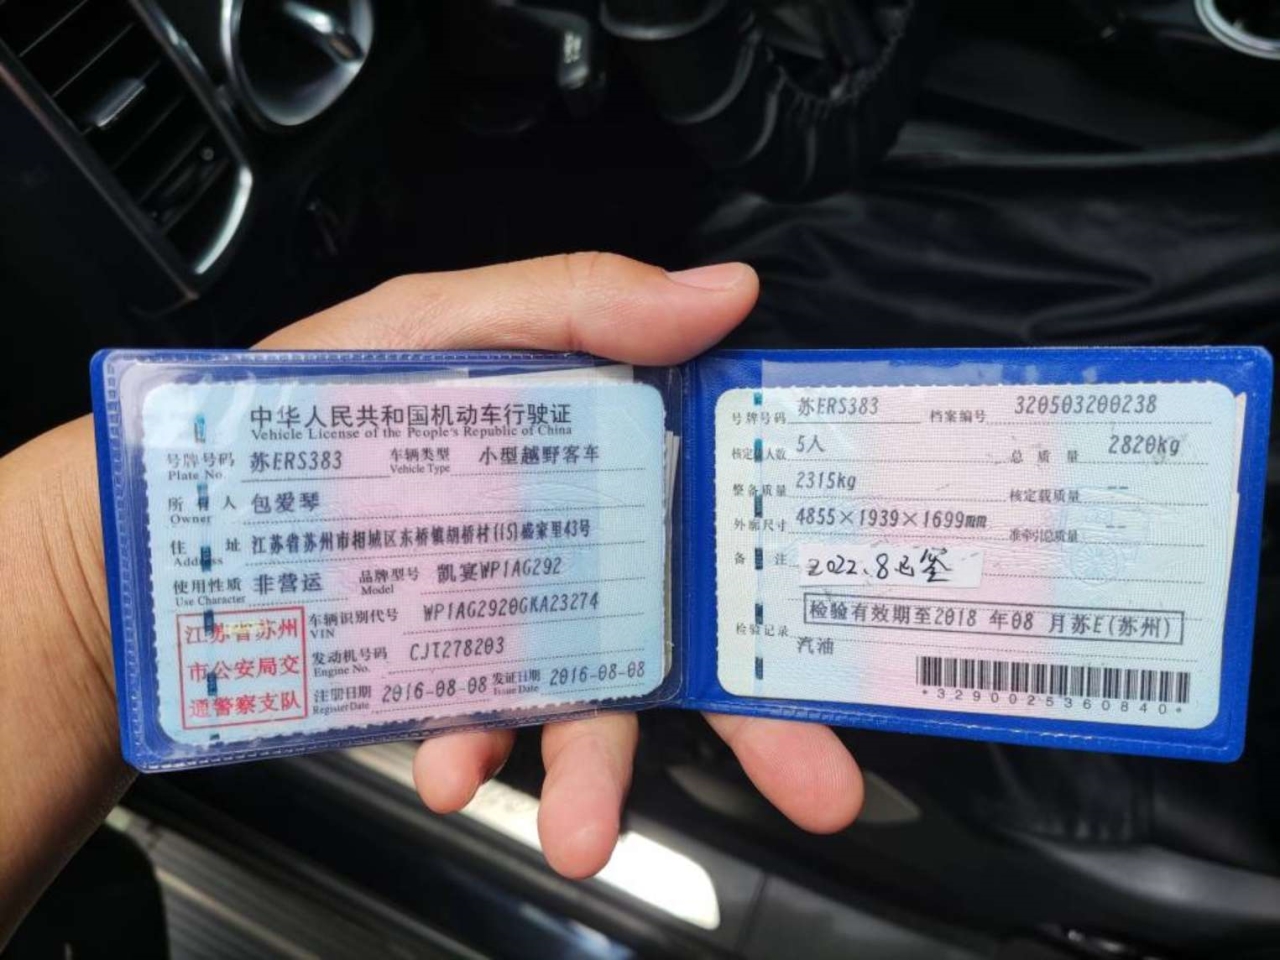 中华人民共和国机动车行驶证
Vehicle License of the People's Republic of China
号牌号码 苏ERS383 车辆类型 小型越野客车
Plate No. Vehicle Type
所有人 包爱琴
Owner
住址 江苏省苏州市相城区东桥镇胡桥村(15)盛家里43号
Address
使用性质 非营运 品牌型号 凯宴WP1AG292
Use Character Model
江苏省苏州
市公安局交
通警察支队
车辆识别代号 WP1AG2920GKA23274
VIN
发动机号码 CJT278203
Engine No.
注册日期 2016-08-08 发证日期 2016-08-08
Register Date Issue Date
号牌号码 苏ERS383 档案编号 320503200238
核定人数 5人 总质量 2820kg
整备质量 2315kg 核定载质量 --
外廓尺寸 4855×1939×1699mm 准牵引总质量 --
备注 2022.8已签
检验有效期至2018年08月苏E(苏州)
检验记录
汽油
*3290025360840*